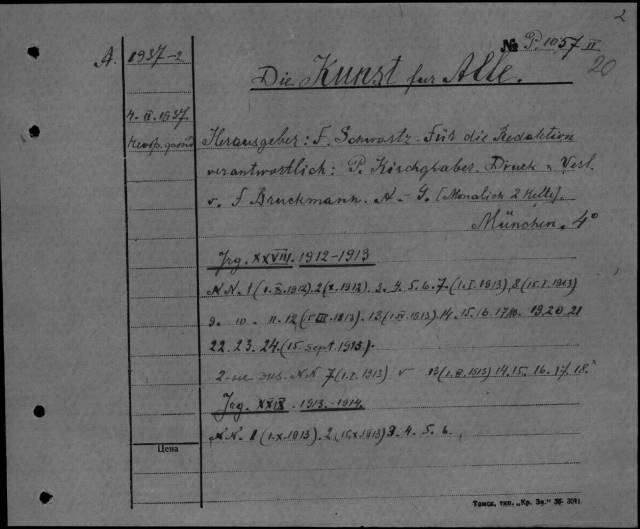 2
№ P. 1057 II
20
A. 1937-2
Die Kunst für Alle.
4. II. 1937.
Herausgeber: F. Schwartz - Für die Redaktion
verantwortlich: P. Kirchgraber. Druck u. Verl.
v. F Bruckmann. A.-G. [Monatlich 2 Hefte].
München. 4°
Jrg. XXVIII. 1912-1913
NN. 1 (1.X.1912). 2 (X.1912). 3. 4. 5. 6. 7. (1.I.1913), 8 (15.I.1913)
9. 10. 11. 12 (15.III.1913). 13 (1.IV.1913). 14. 15. 16. 17. 18. 19. 20. 21
22. 23. 24. (15. Sept 1913).
2-ые экз. NN 7 (1.I.1913) 13 (1.IV.1913) 14. 15. 16. 17. 18.
Jrg. XXIX. 1913.-1914.
NN. 1 (1.X.1913). 2. (15.X.1913) 3. 4. 5. 6.
Цена
Томск, тип. „Кр. Зн." 36- 3091